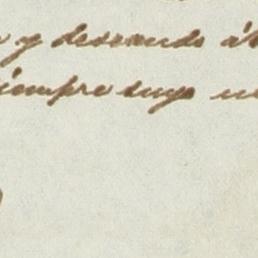 y deseando
siempre suyo